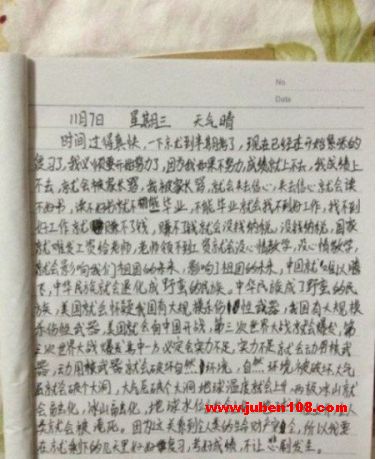 No.
Date
11月7日 星期三 天气晴
时间过得真快,一下就到半期考了,现在已经在开始紧张的
复习了,我必须要开始努力了,因为我如果不努力,成绩就上不去,我成绩上
不去,就会被家长骂,我被家长骂,就会失去信心,失去信心就会读
不好书,读不好书就不能毕业,不能毕业就会找不到好工作,找不到
好工作就赚不了钱,赚不了钱就会没钱纳税,没钱纳税,国家
就难发工资给老师,老师领不到工资就会没心情教学,没心情教学,
就会影响我们祖国的未来,影响了祖国的未来,中国就难以腾
飞,中华民族就会退化成野蛮的民族。中华民族成了野蛮的民
族,美国就会怀疑我国有大规模杀伤性武器,我国有大规模
杀伤性武器,美国就会向中国开战,第三次世界大战就会爆发,第
三次世界大战爆发其中一方必定会实力不足,实力不足就会动用核武
器,动用核武器就会破坏自然环境,自然环境被破坏大气
层就会破个大洞,大气层破个大洞地球温度就会上升,两极冰山就
会融化,冰山融化,地球水位
www.juben108.com
类就会被淹死。因为这关系到全人类的生命财产安全,所以我要
在就剩下的几天里好好复习,考好成绩,不让悲剧发生。